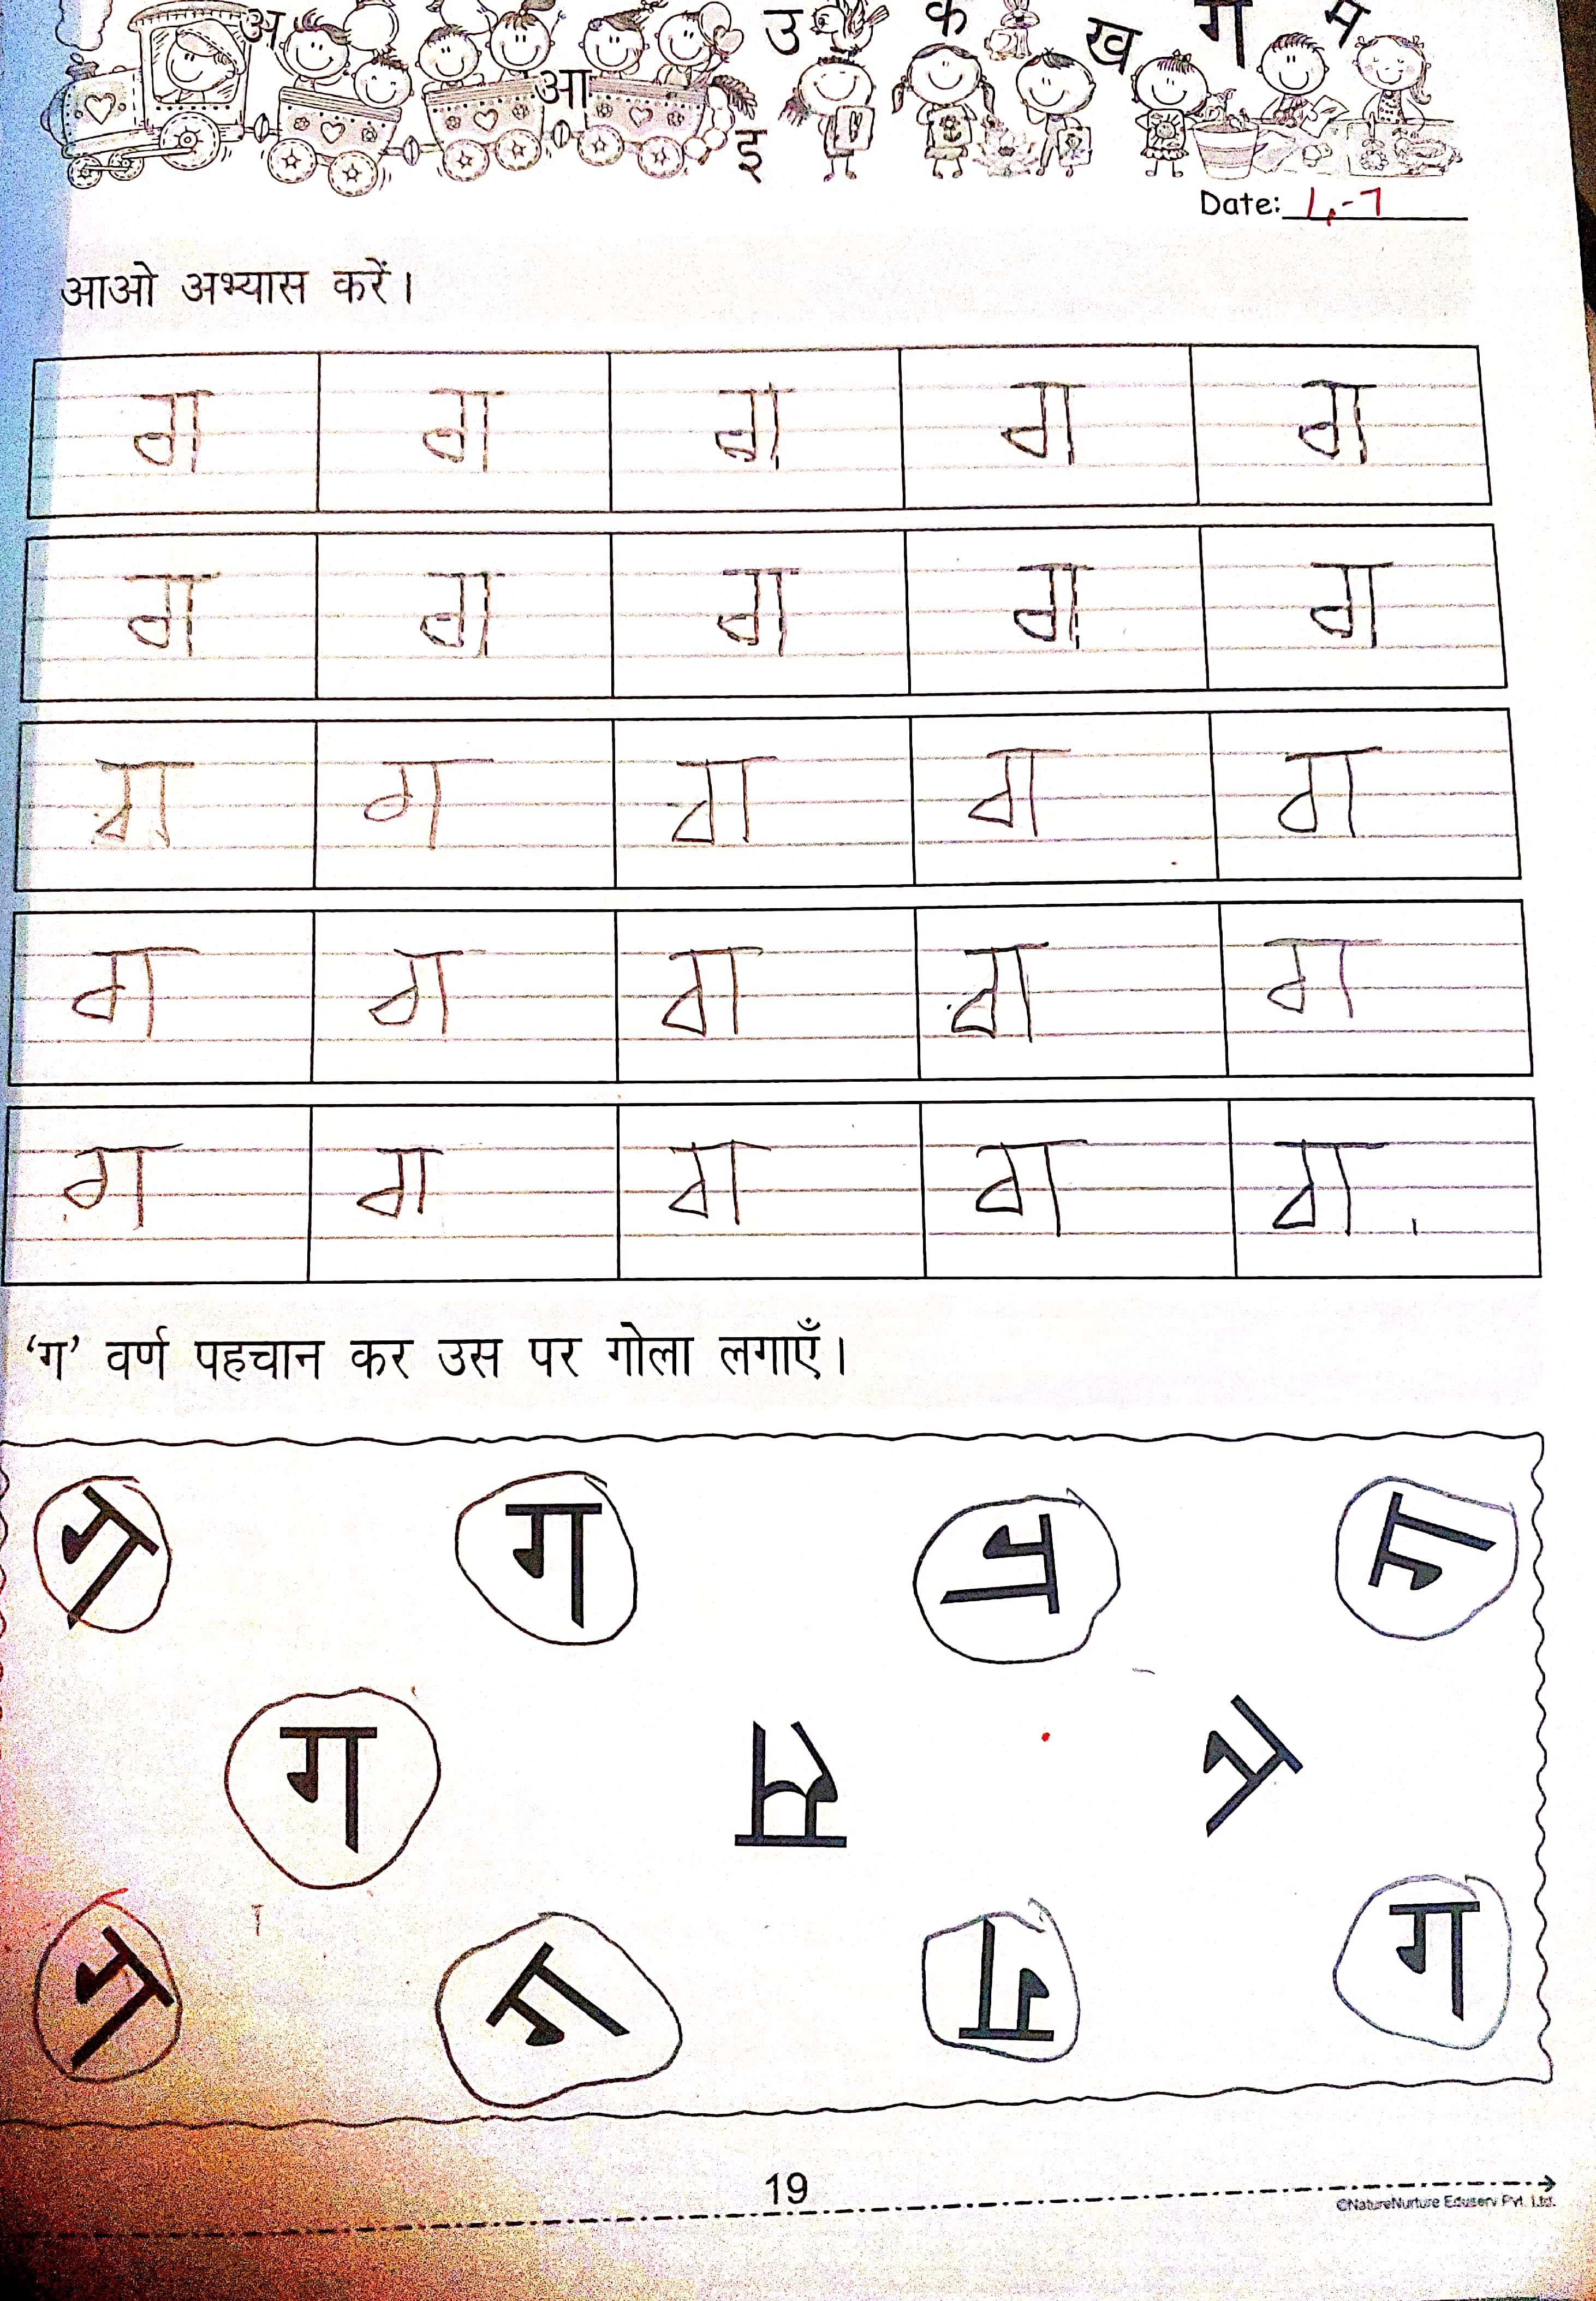 अ आ इ उ क ख ग म
Date: 1,-7
आओ अभ्यास करें।
ग ग ग ग ग
ग ग ग ग ग
ग ग ग ग ग
ग ग ग ग ग
ग ग ग ग ग
‘ग’ वर्ण पहचान कर उस पर गोला लगाएँ।
ग ग ग ग
ग स न
ग ग ग ग
19
©NatureNurture Eduserv Pvt. Ltd.